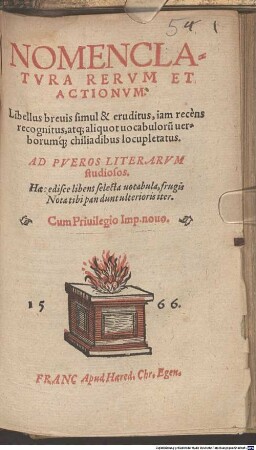 541
NOMENCLA-
TVRA RERVM ET
ACTIONVM.
Libellus breuis simul & eruditus, iam recèns
recognitus, atq; aliquot uocabulorũ uer-
borumq; chiliadibus locupletatus.
AD PVEROS LITERARVM
studiosos.
Hæc edisce libent selecta uocabula, frugis
Nota tibi pandunt ulterioris iter.
Cum Priuilegio Imp. nouo.
15 66.
FRANC Apud Hæred. Chr. Egen.